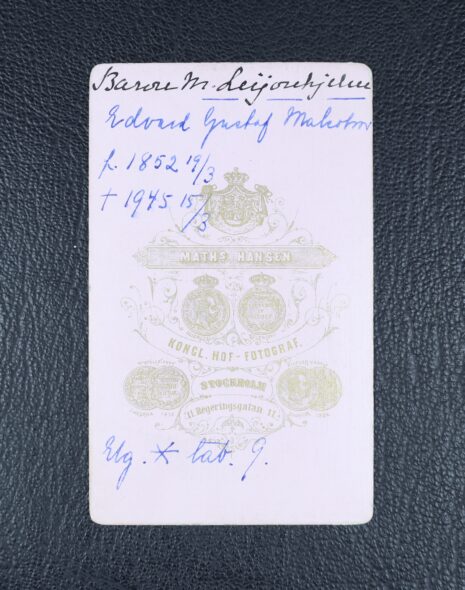 Baron M. Leijonhjelm
Edvard Gustaf Malcolm
f. 1852 19/3
† 1945 15/3
MATHS HANSEN
KONGL. HOF-FOTOGRAF.
STOCKHOLM
11 Regeringsgatan 11.
Elg. * tab. 9.